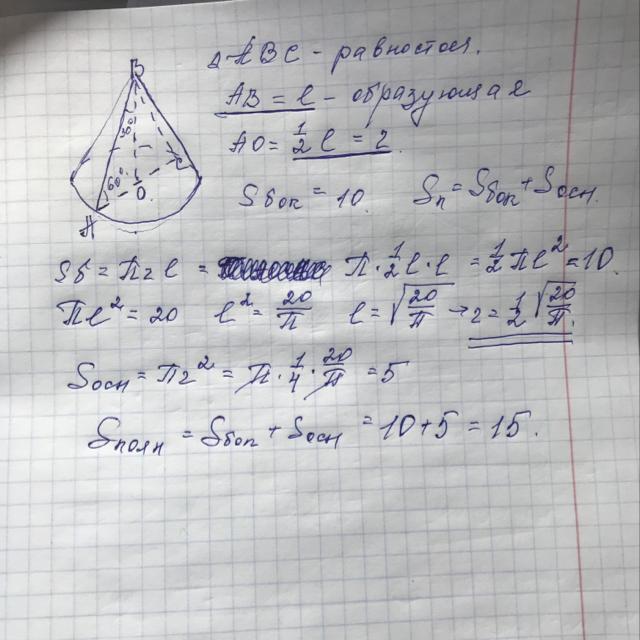 Δ ABC - равностор.
AB = l - образующая
AO = 1/2 l = r.
Sбок = 10. Sп = Sбок + Sосн.
Sб = Πrl = Π · 1/2 l · l = 1/2 Πl² = 10.
Πl² = 20 l² = 20/Π l = √(20/Π) → r = 1/2 √(20/Π).
Sосн = Πr² = Π · 1/4 · 20/Π = 5
Sполн = Sбок + Sосн = 10 + 5 = 15.
B
30°
60°
O
C
A